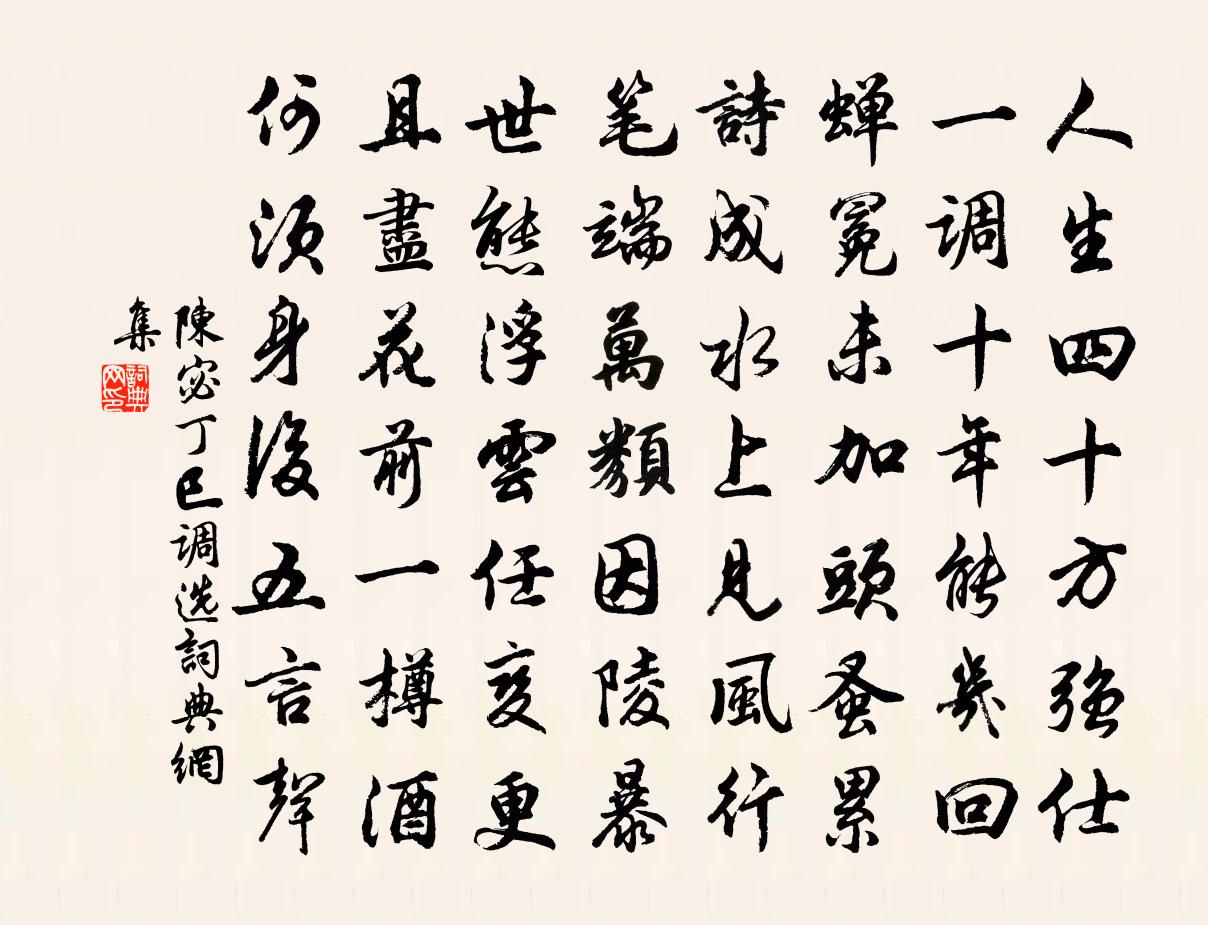 人生四十方强仕
一调十年能幾回
蝉冕未加頭蚤累
詩成水上見風行
笔端萬類因陵暴
世態浮雲任変更
且盡花前一樽酒
何須身後五言聲
陳宓丁巳调选詞典網
集
詞典网印